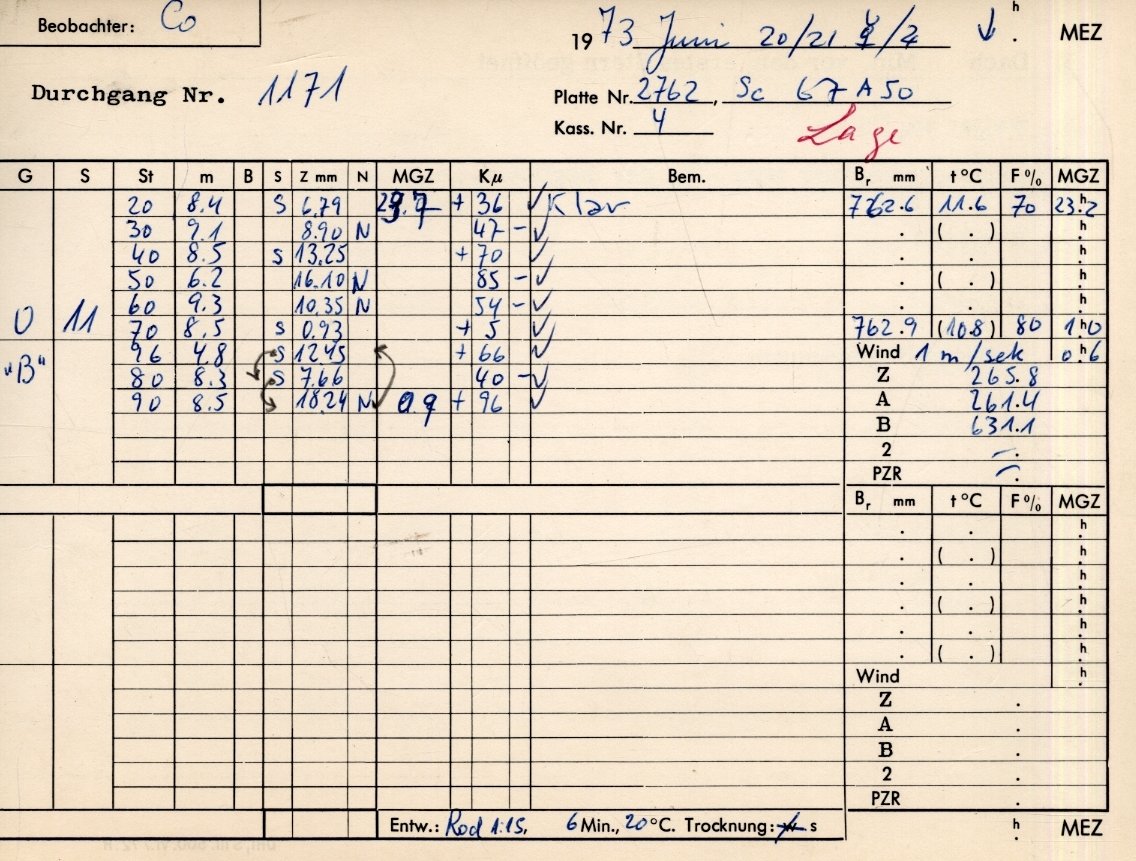 Beobachter: Co
1973 Juni 20/21 ↓ . h MEZ
Durchgang Nr. 1171
Platte Nr. 2762, Sc 67 A 50
Kass. Nr. 4
Lage
G S St m B S Z mm N MGZ Kμ Bem. Br mm t°C F% MGZ
20 8.4 S 6.79 + 36 ✓ Klar 762.6 11.6 70 23.h2
30 9.1 8.90 N 47 - ✓ . ( . ) .h
40 8.5 S 13.25 + 70 ✓ . . .h
50 6.2 16.10 N 85 - ✓ . ( . ) .h
60 9.3 10.35 N 54 - ✓ . . .h
O 11 70 8.5 S 0.93 + 5 ✓ 762.9 (10.8) 80 1.h0
"B" 96 4.8 S 12.45 + 66 ✓ Wind 1 m/sek 0.h6
80 8.3 S 7.66 40 - ✓ Z 265.8
90 8.5 18.24 N 0.9 + 96 ✓ A 261.4
B 631.1
2 —.
PZR —.
Br mm t°C F% MGZ
. . .h
. ( . ) .h
. . .h
. ( . ) .h
. . .h
. ( . ) .h
Wind .h
Z .
A .
B .
2 .
PZR .
Entw.: Rod 1:15, 6 Min., 20°C. Trocknung: s . h MEZ